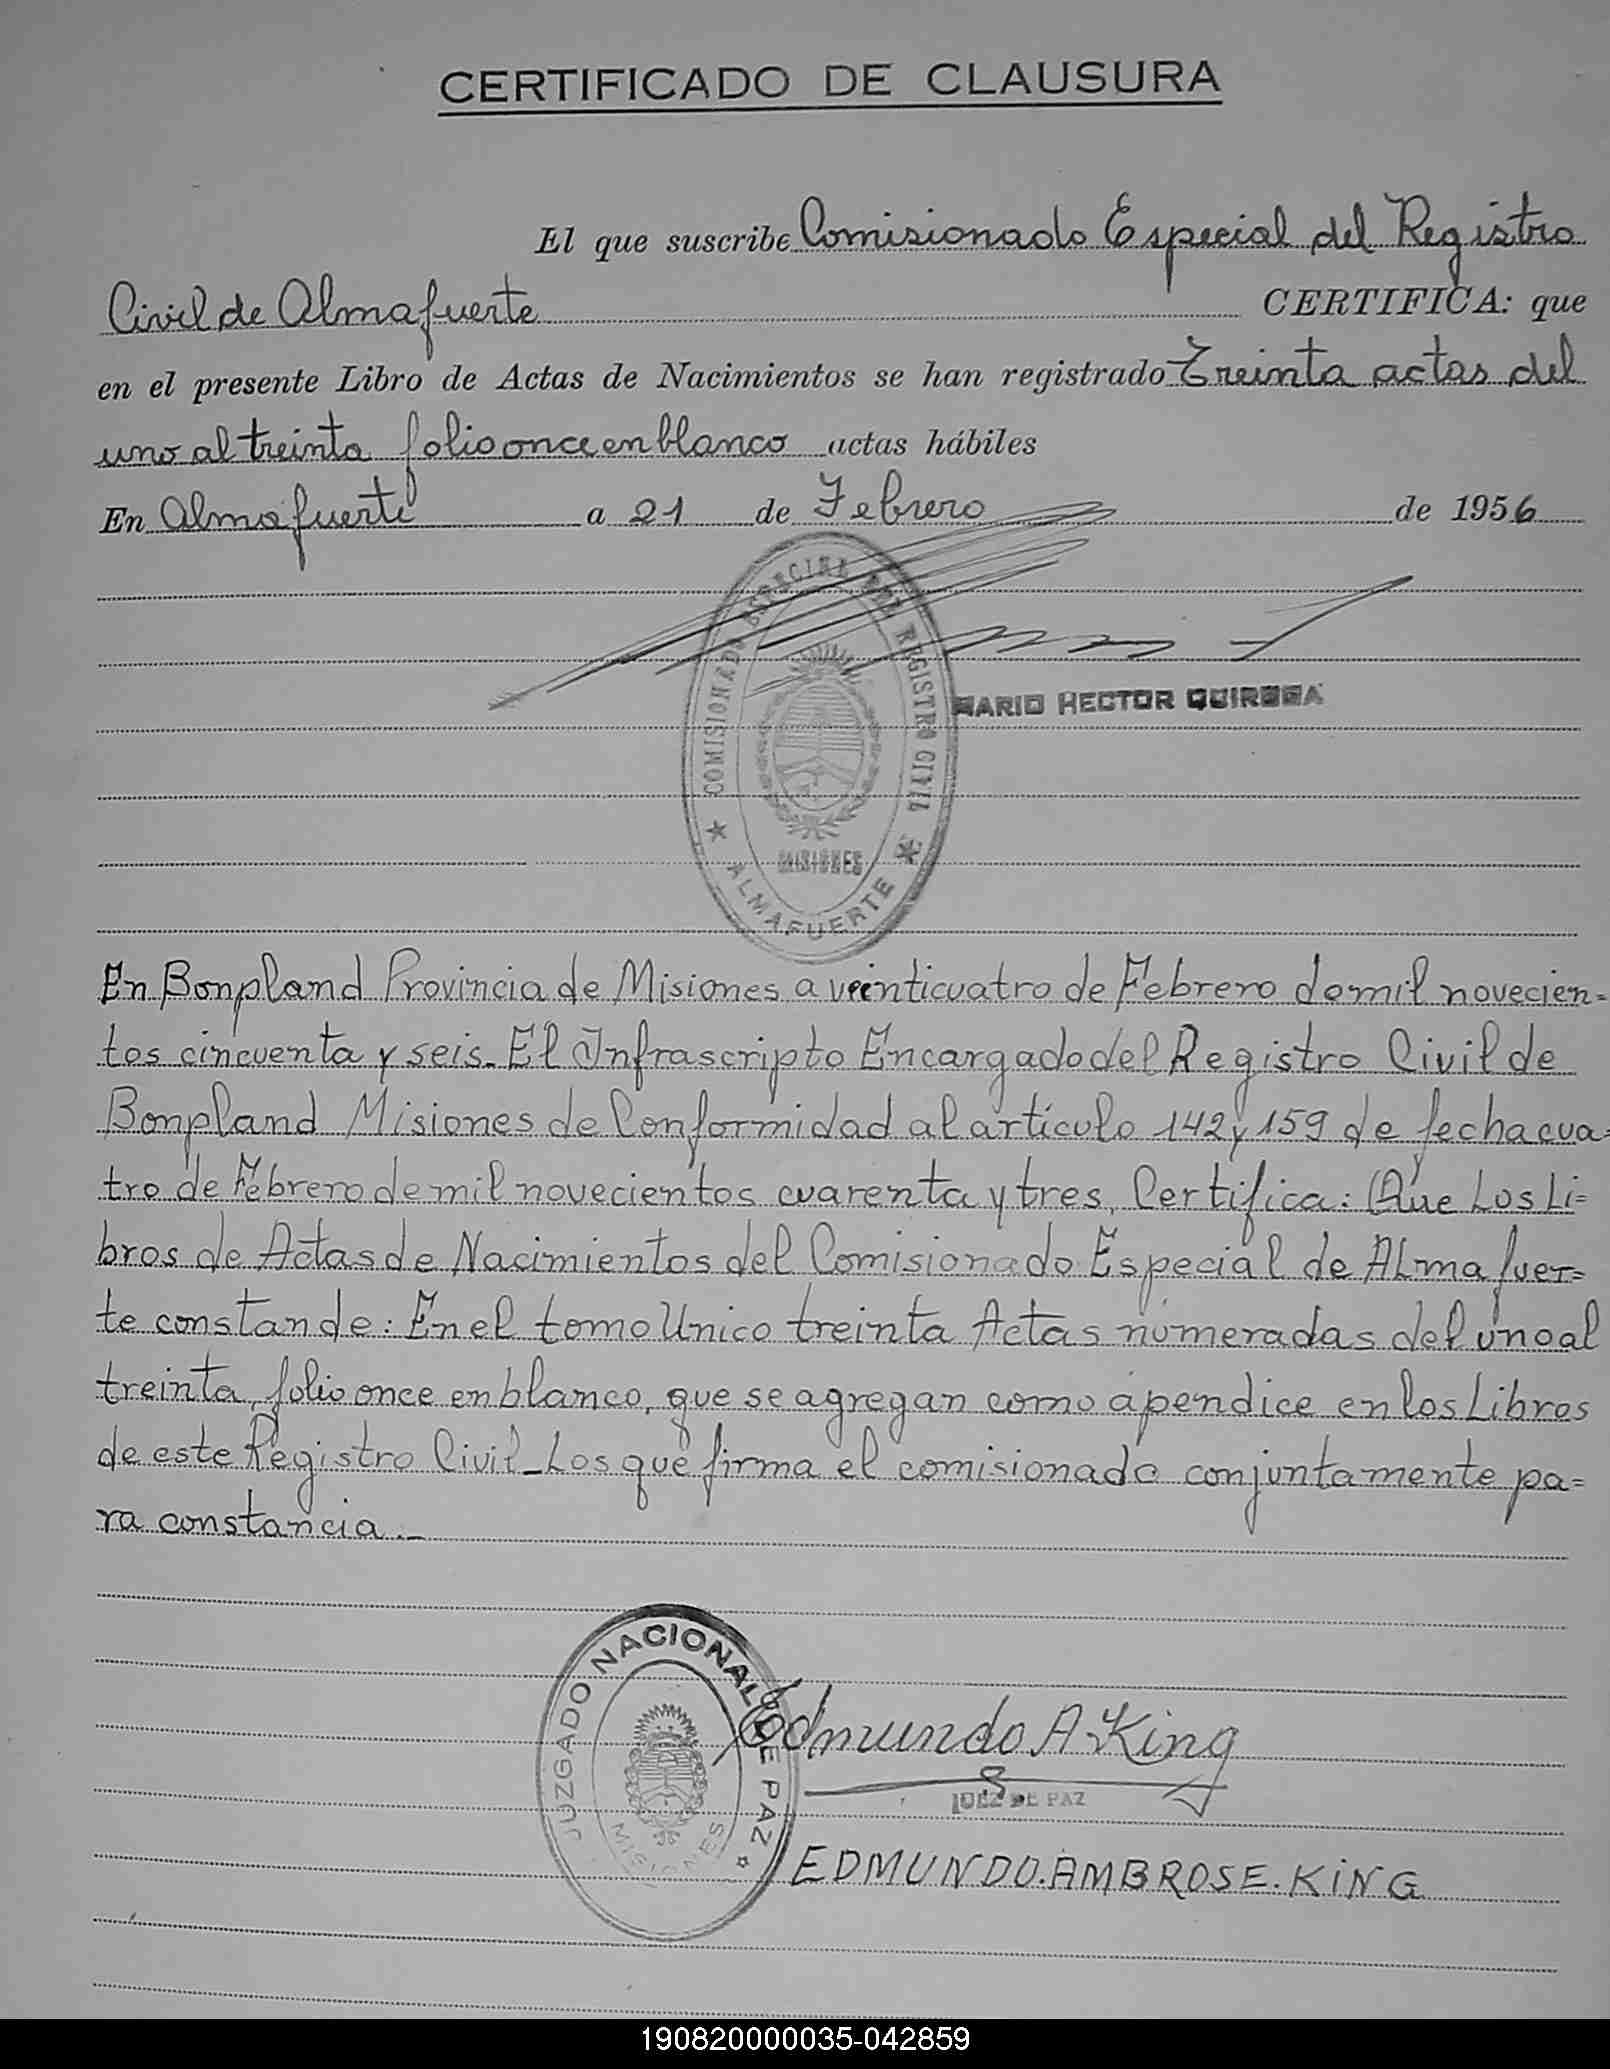 CERTIFICADO DE CLAUSURA
El que suscribe Comisionado Especial del Registro
Civil de Almafuerte CERTIFICA: que
en el presente Libro de Actas de Nacimientos se han registrado Treinta actas del
uno al treinta folio once en blanco actas hábiles
En Almafuerte a 21 de Febrero de 1956
COMISIONADO ESPECIAL DEL REGISTRO CIVIL
MARIO HECTOR QUIROGA
MISIONES
ALMAFUERTE
En Bonpland Provincia de Misiones a veinticuatro de Febrero de mil novecien=
tos cincuenta y seis. El Infrascripto Encargado del Registro Civil de
Bonpland Misiones de Conformidad al artículo 142 y 159 de fecha cua=
tro de Febrero de mil novecientos cuarenta y tres, Certifica: Que Los Li=
bros de Actas de Nacimientos del Comisionado Especial de ALmafuer=
te constan de: En el tomo Unico treinta Actas númeradas del uno al
treinta, folio once en blanco, que se agregan como ápendice en los Libros
de este Registro Civil_ Los que firma el comisionado conjuntamente pa=
ra constancia._
JUZGADO NACIONAL DE PAZ
MISIONES
Edmundo A. King
JUEZ DE PAZ
EDMUNDO.AMBROSE.KING
190820000035-042859